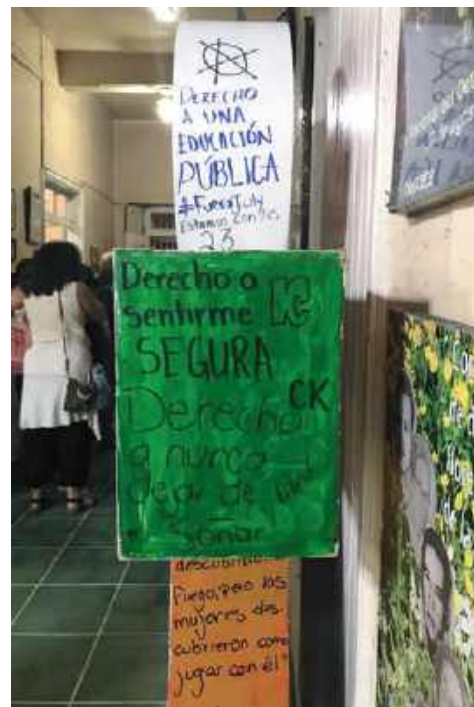 DERECHO
A UNA
EDUCACIÓN
PÚBLICA
#FueraJuly
Estamos con tes
23
Derecho a
sentirme
SEGURA
CK
Derecho
a nunca
dejar de
soñar
descubrieron
Fuego, pero las
mujeres des
cubrieron como
jugar con él"